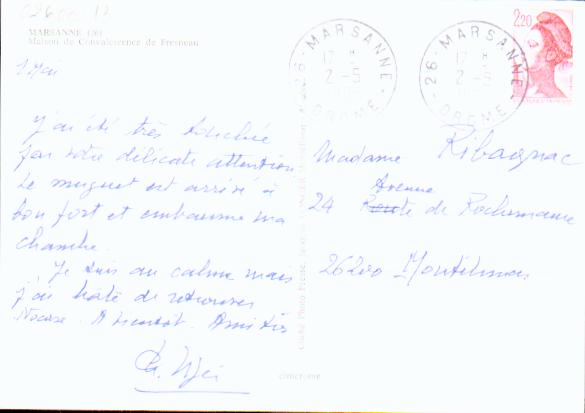 MARSANNE 1201
Maison de Convalescence de Fresneau
1 Mai
J'ai été très touchée
par votre délicate attention
Le muguet est arrivé à
bon port et embaume ma
chambre.
Je suis au calme mais
j'ai hâte de retrouver
A bientôt. Amitiés
Madame Ribagnac
Avenue
24 Route de Rochemaure
26200 Montélimar
26 - MARSANNE - DROME
17 H
2-5
26 - MARSANNE - DROME
17 H
2-5
2,20